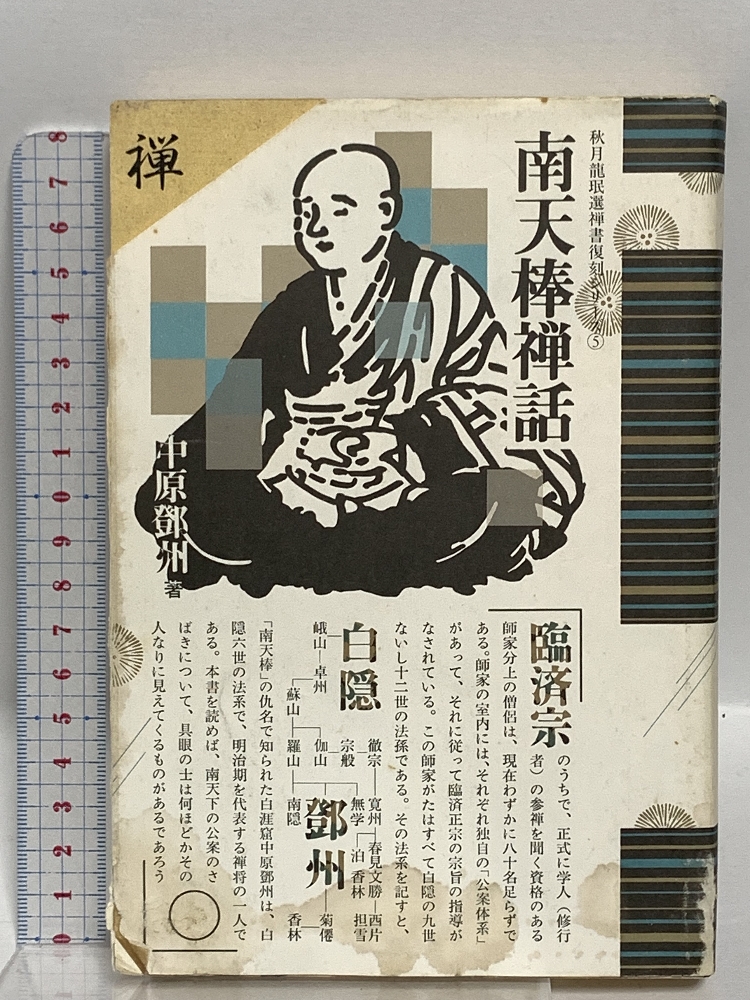 禅
秋月龍珉選禅書復刻シリーズ⑤
南天棒禅話
中原鄧州 著
臨済宗
のうちで、正式に学人（修行
者）の参禅を聞く資格のある
師家分上の僧侶は、現在わずかに八十名足らずで
ある。師家の室内には、それぞれ独自の「公案体系」
があって、それに従って臨済正宗の宗旨の指導が
なされている。この師家がたはすべて白隠の九世
ないし十二世の法孫である。その法系を記すと、
白隠
峨山―卓州
蘇山―羅山―南隠
伽山
宗般
徹宗―寛州―春見文勝―西片
無学
泊
香林
担雪
鄧州―菊僊
香林
「南天棒」の仇名で知られた白涯窟中原鄧州は、白
隠六世の法系で、明治期を代表する禅将の一人で
ある。本書を読めば、南天下の公案のさ
ばきについて、具眼の士は何ほどかその
人なりに見えてくるものがあるであろう
8
7
6
5
4
3
2
1
0
9
8
7
6
5
4
3
2
1
0